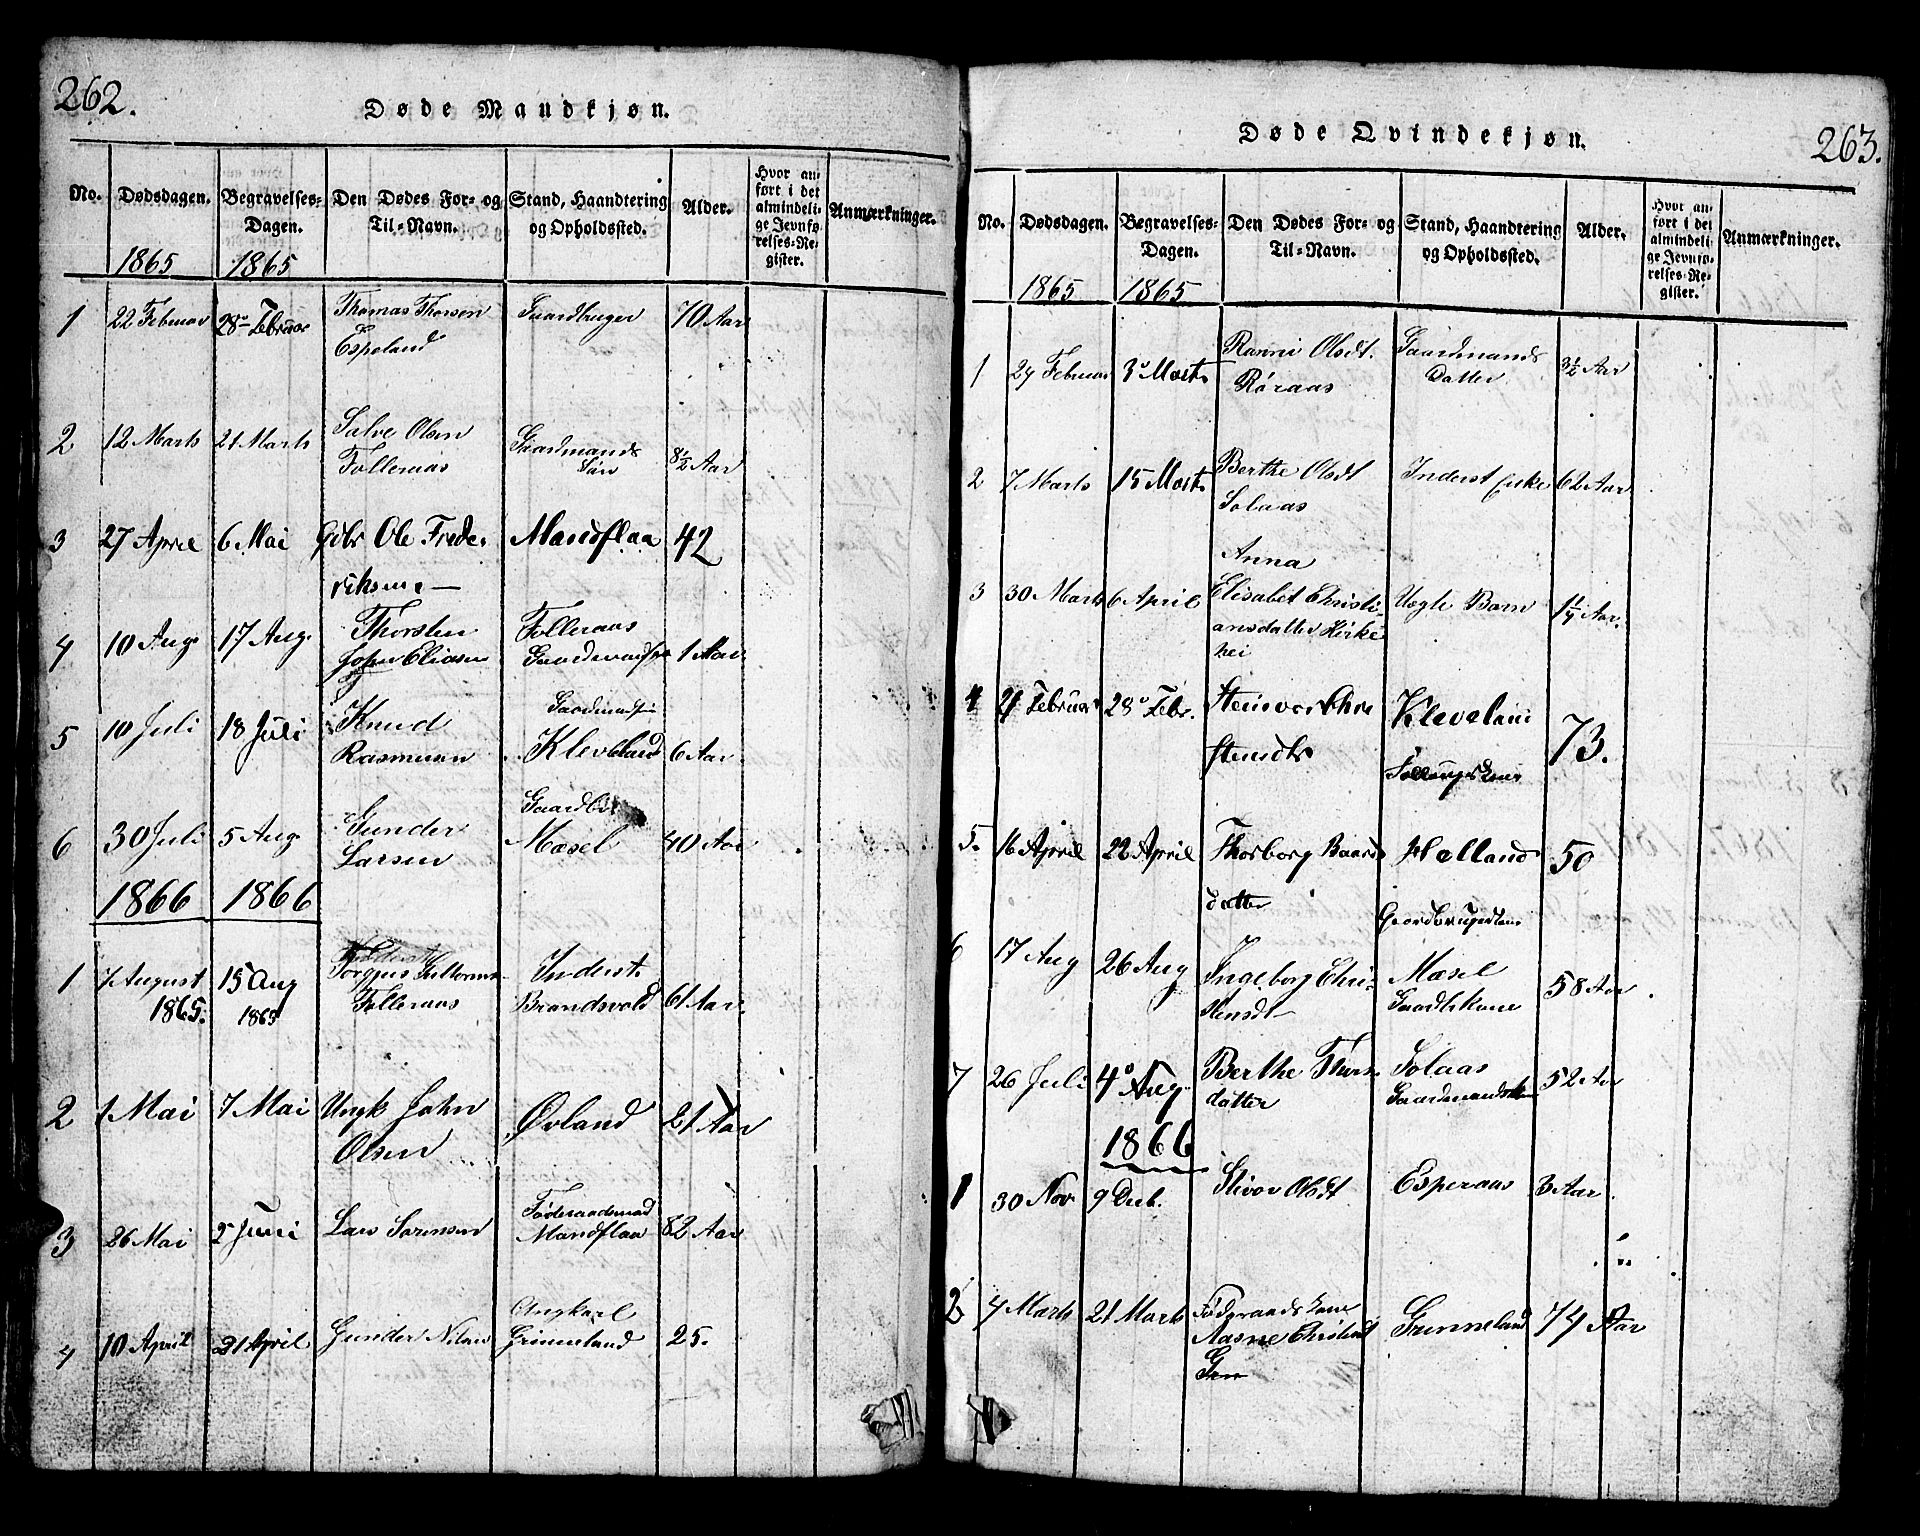 262.
Døde Mandkjøn.
No. Dødsdagen. Begravelses-Dagen. Den Dødes For- og Til-Navn. Stand, Haandtering og Opholdssted. Alder. Hvor anført i det almindelige Jevnførelses-Register. Anmærkninger.
1865 1865
1 22 Februar 28 Februar Thomas Thorsen Gaardbruger 70 Aar
Espeland
2 12 Marts 21 Marts Salve Olsen Gaardmands 8½ Aar
Folleraas Søn
3 27 April 6 Mai Gdbr Ole Frede- Mandflaa 42
riksen
4 10 Aug 17 Aug Thorsten Folleraas
Eliasen 1 Aar
5 10 Juli 18 Juli Knud
Rasmusen Kleveland 6 Aar
6 30 Juli 5 Aug Gunder
Larsen Mæsel 40 Aar
1866 1866
1 7 August 15 Aug Torgius Inderst
1865. 1865 Folleraas Brandsvold 61 Aar.
2 1 Mai 7 Mai Ungk John Øvland 21 Aar
Olsen
3 26 Mai 2 Juni Lars Sørensen Føderaadsmand 82 Aar
Mandflaa
4 10 April 21 April Gunder Nilsen Ungkarl 25.
Grimeland
Døde Qvindekjøn.
263.
No. Dødsdagen. Begravelses-Dagen. Den Dødes For- og Til-Navn. Stand, Haandtering og Opholdssted. Alder. Hvor anført i det almindelige Jevnførelses-Register. Anmærkninger.
1865 1865
1 24 Februar 3 Marts Ranni Olsdt. Gaardmands 3½ Aar
Røraas Datter
2 7 Marts 15 Marts Berthe Olsdt Inderst Enke 62 Aar
Solaas
Anna
3 30 Marts 6 April Elisabet Christi- Uegte Barn
ansdatter Kirke
hei
4 21 Februar 28 Febr. Kleveland 73.
stensdtr
5. 16 April 22 April Thorborg Baards Helland 50
datter
Gaardbrugerkone
6 17 Aug 26 Aug Ingeborg Chri- Mæsel 58 Aar
stensdt Gaardbkone
7 26 Juli 4 Aug Berthe Solaas 52 Aar
datter
1866
1 30 Nov 9 Deb. Olsdt Esperaas 3 Aar
2 4 Marts 21 Marts Fødgraadskone Grimeland 74 Aar
Aasne